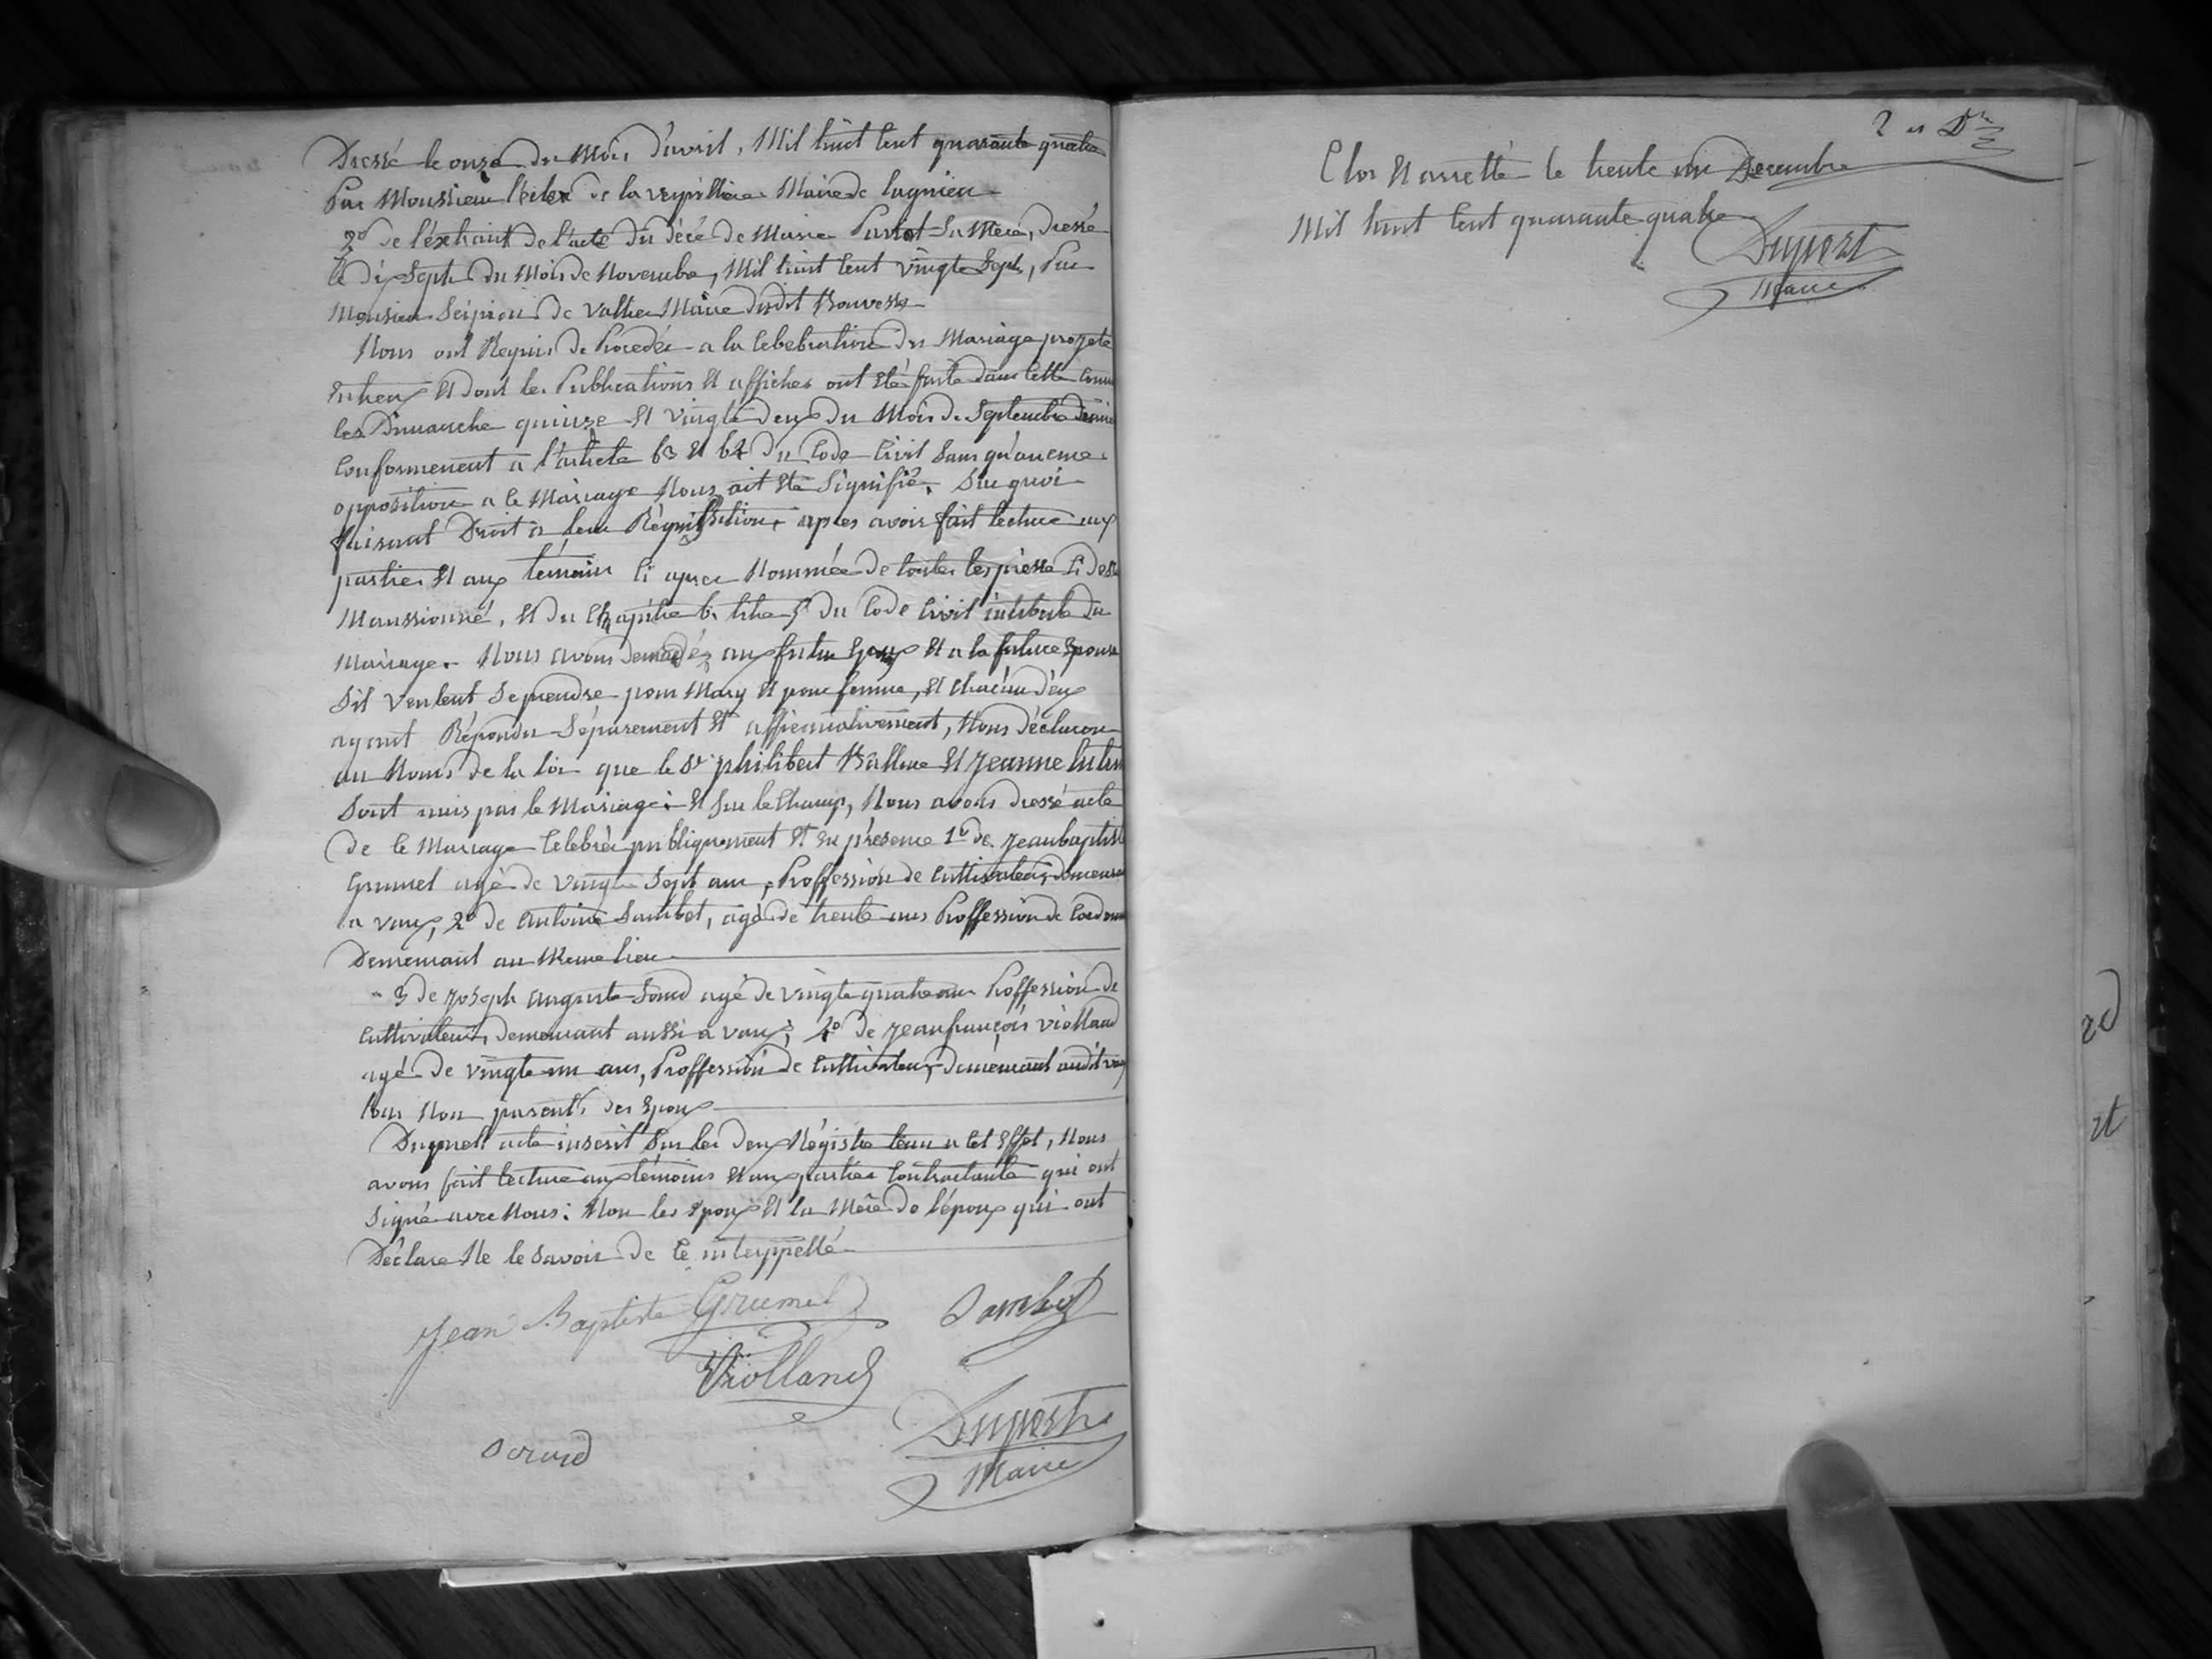 Dressé le onze du Mois d'avril, Mil huit Cent quarante quatre
Par Monssieur de la verpillière Maire de lagnieu
3º de l'éxtrait de l'acte du décé de Marie Sa Mere, dressé
le dix Sept du Mois de Novembre, Mil huit Cent vingte Sept, Par
Monsieur Scipion de Vallier Maire dudit Bouvesse
Nous ont Requis de Procedér a la Celebration du Mariage projeté
entreux Et dont les Publications Et affiches ont été faite dans Cette Comm
les Dimanche quinze Et vingte deux du Mois de Septembre dernie
Conformement a l'article 63 Et 64 du Code Civil Sans qu'aucune
opposition a Ce Mariage Nous ait été Signifié. Sur quoi
faisant Droit a leur Réquissition: apres avoir fait lecture aux
parties Et aux témoin Ci apres Nommée de toutes les piesse Ci dess
Manssionné, Et du Chapitre 6. titre 5 du Code Civil intitulé du
Mariage. Nous avons demandé, aux futur Epoux Et a la future Epouse
Sil veulent Se prendre pour Mary Et pour femme, Et chacun d'eux
ayant Répondu Séparement Et affirmativement, Nous déclarons
au Noms de la loi que le Sr philibert Et Jeanne
Sont unis par le Mariage: Et Sur le Champ, Nous avons dressé acte
de Ce Mariage Celebré publiquement Et En présence 1º de Jean baptiste
Grumel agé de vingte Sept ans, Proffession de Cultivateur, demeura
a vaux, 2º de antoine Sambet, agé de trente ans Proffession de Cordonn
Demeurant au Meme lieu
3 de Joseph auguste agé de vingte quatre ans Proffession de
Cultivateur, demeurant aussi a vaux; 4º de Jean françois violland
agé de vingte un ans, Proffession de Cultivateur, demeurant audit vaux
tous Non parents des Epoux
Duquel acte inscrit Sur les deux Régistre tenu a Cet Effet, Nous
avons fait lecture aux témoins Et aux parties Contractante qui ont
Signé avec Nous: Non les Epoux Et la Mére de l'époux qui ont
Déclare Ne le Savoir de Ce interppellé
Jean Baptiste Grumel
Sambet
Violland
Duport
Maire
2 et Dr
Clos Et arretté le trente un Decembre
Mil huit Cent quarante quatre
Duport
Maire